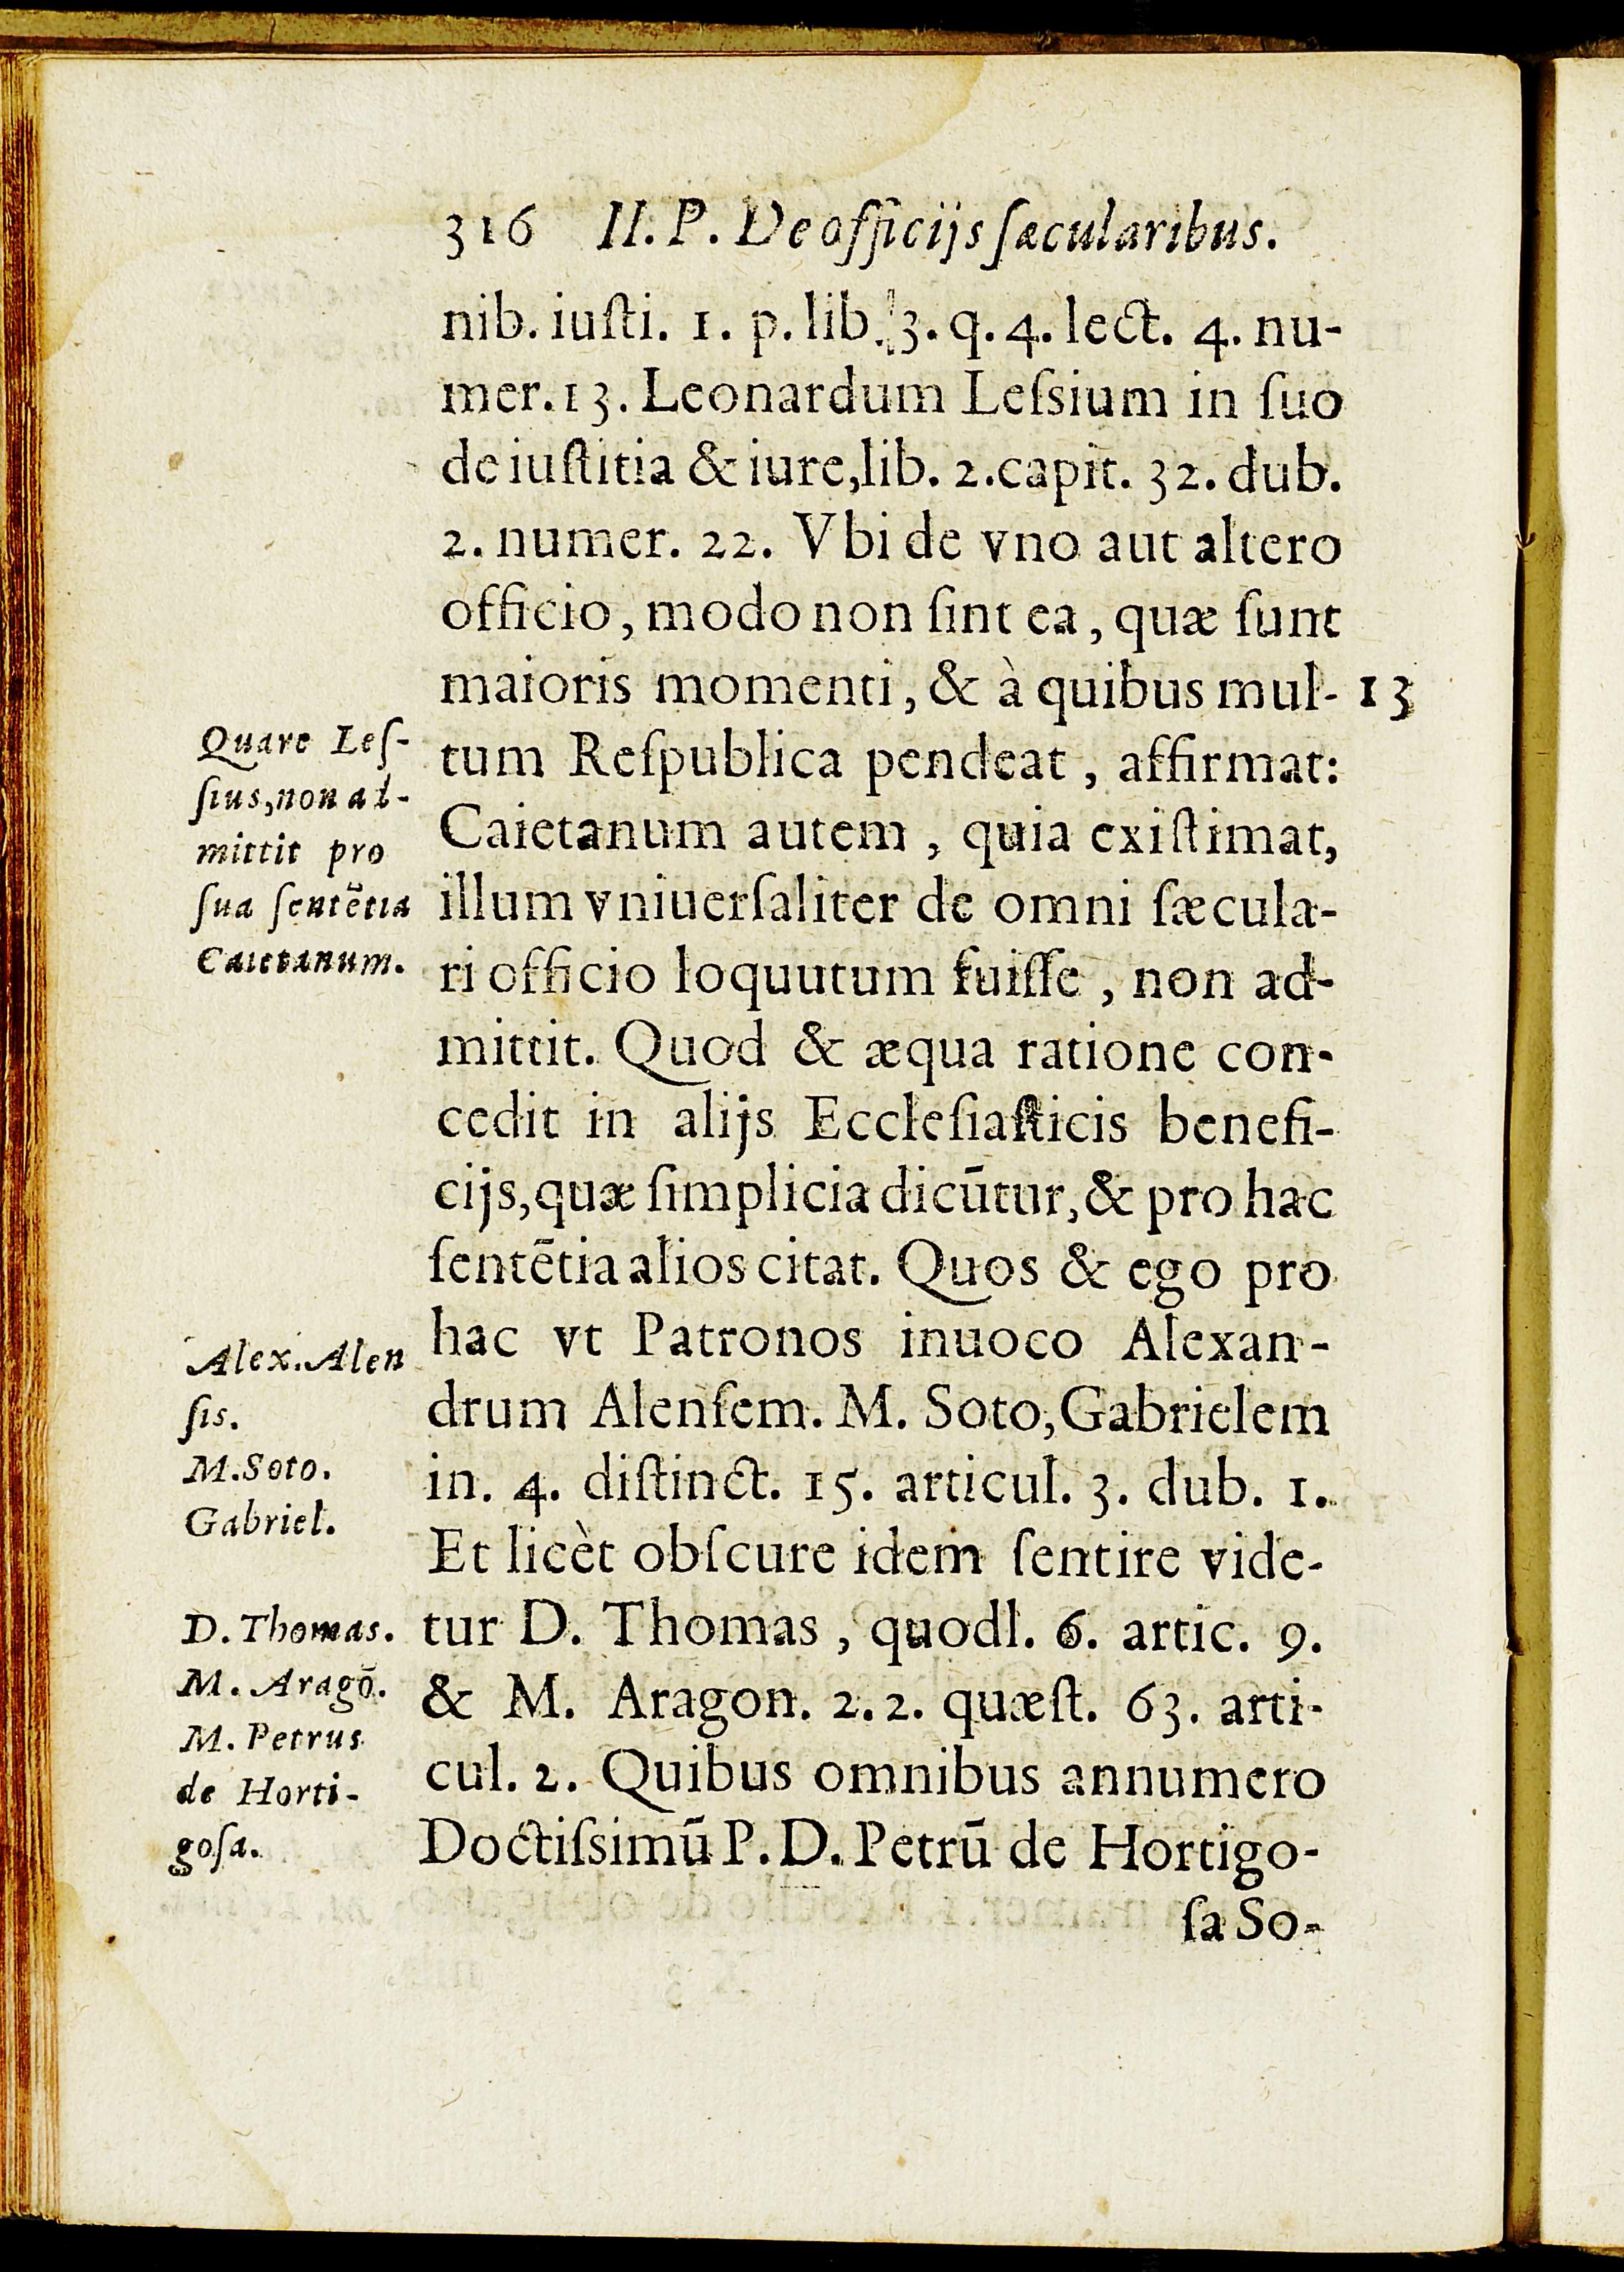 316 II. P. De officijs sæcularibus.
nib. iuſti. 1. p. lib. 3. q. 4. lect. 4. nu-
mer. 13. Leonardum Leſsium in ſuo
de iuſtitia & iure, lib. 2. capit. 32. dub.
2. numer. 22. Vbi de vno aut altero
officio, modo non ſint ea, quæ ſunt
maioris momenti, & à quibus mul-
13
tum Reſpublica pendeat, affirmat:
Caietanum autem, quia exiſtimat,
illum vniuerſaliter de omni ſæcula-
ri officio loquutum fuiſſe, non ad-
mittit. Quod & æqua ratione con-
cedit in alijs Eccleſiaſticis benefi-
cijs, quæ ſimplicia dicūtur, & pro hac
ſentētia alios citat. Quos & ego pro
hac vt Patronos inuoco Alexan-
drum Alenſem. M. Soto, Gabrielem
in. 4. diſtinct. 15. articul. 3. dub. 1.
Et licèt obſcure idem ſentire vide-
tur D. Thomas, quodl. 6. artic. 9.
& M. Aragon. 2. 2. quæſt. 63. arti-
cul. 2. Quibus omnibus annumero
Doctiſsimū P. D. Petrū de Hortigo-
ſa So-
Quare Leſ-
ſius, non ad-
mittit pro
ſua ſentētia
Caietanum.
Alex. Alen
ſis.
M. Soto.
Gabriel.
D. Thomas.
M. Aragō.
M. Petrus
de Horti-
goſa.